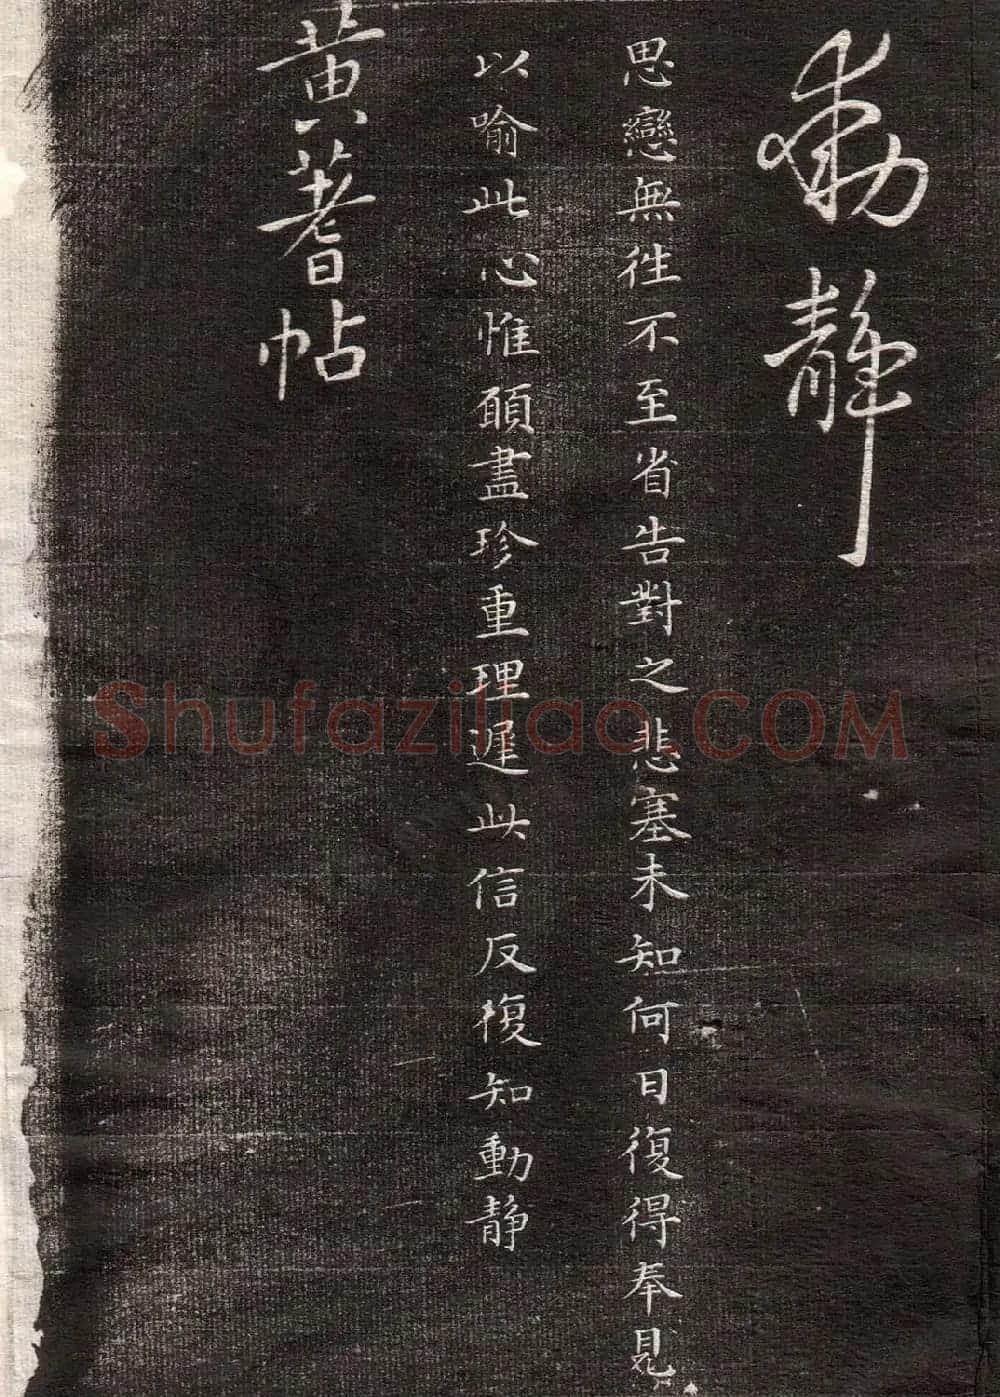 動靜
思戀無往不至省告對之悲塞未知何日復得奉見
以喻此心惟願盡珍重理遲此信反復知動静
黄耆帖
Shufaziliao.COM